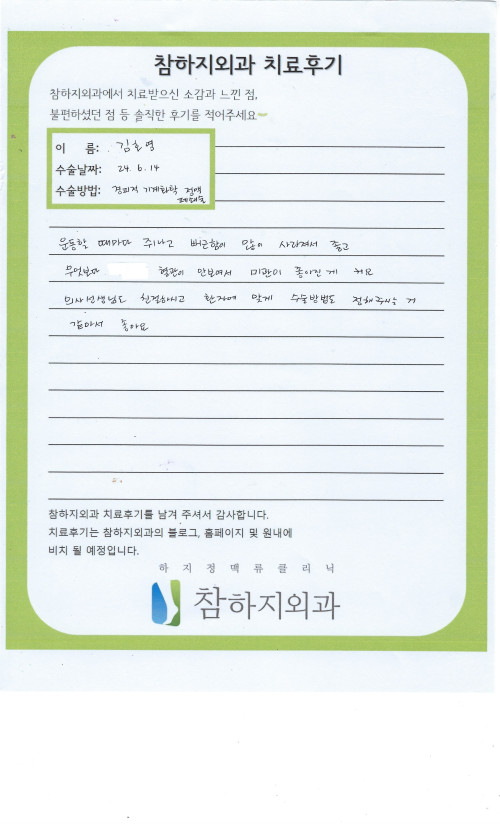 참하지외과 치료후기
참하지외과에서 치료받으신 소감과 느낀 점,
불편하셨던 점 등 솔직한 후기를 적어주세요
이 름: 김호영
수술날짜: 24. 6. 14
수술방법: 경피적 기계화학 정맥
폐쇄술
운동할 때마다 쥐나고 뻐근함이 많이 사라져서 좋고
무엇보다 혈관이 안보여서 미관이 좋아진 게
의사선생님도 친절하시고 환자에 맞게 수술방법도 정해주시는 거
같아서 좋아요
참하지외과 치료후기를 남겨 주셔서 감사합니다.
치료후기는 참하지외과의 블로그, 홈페이지 및 원내에
비치 될 예정입니다.
하지정맥류클리닉
참하지외과